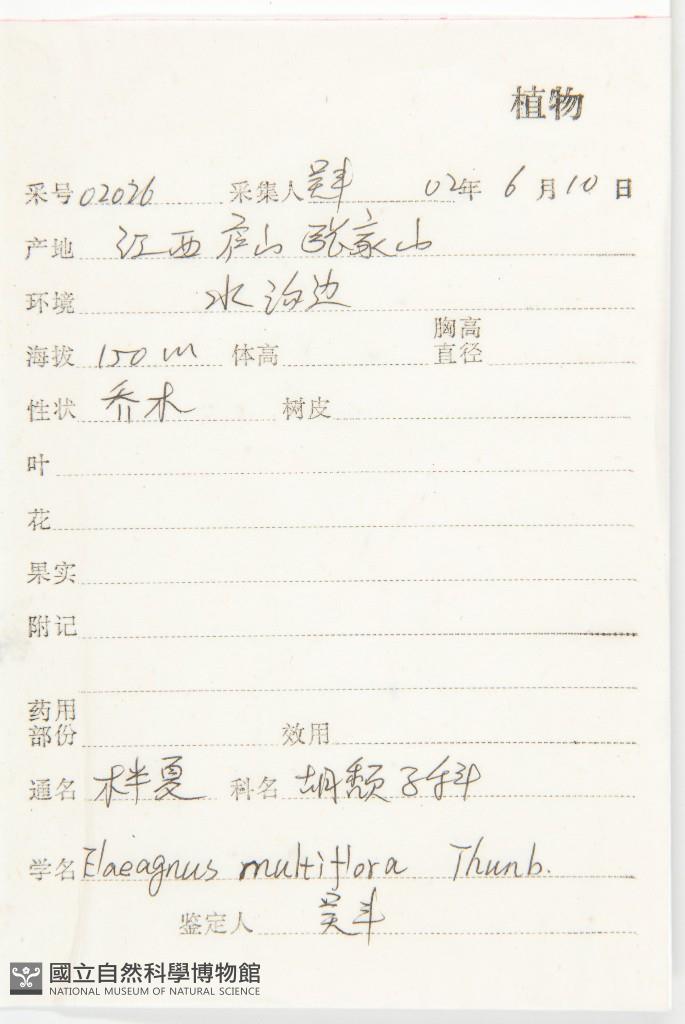 植物
采号 02026 采集人 吴丰 02年 6月10日
产地 江西庐山张家山
环境 水沟边
海拔 150m 体高 胸高直径
性状 乔木 树皮
叶
花
果实
附记
药用部份 效用
通名 柈夏 科名 胡颓子科
学名 Elaeagnus multiflora Thunb.
鉴定人 吴丰
國立自然科學博物館
NATIONAL MUSEUM OF NATURAL SCIENCE